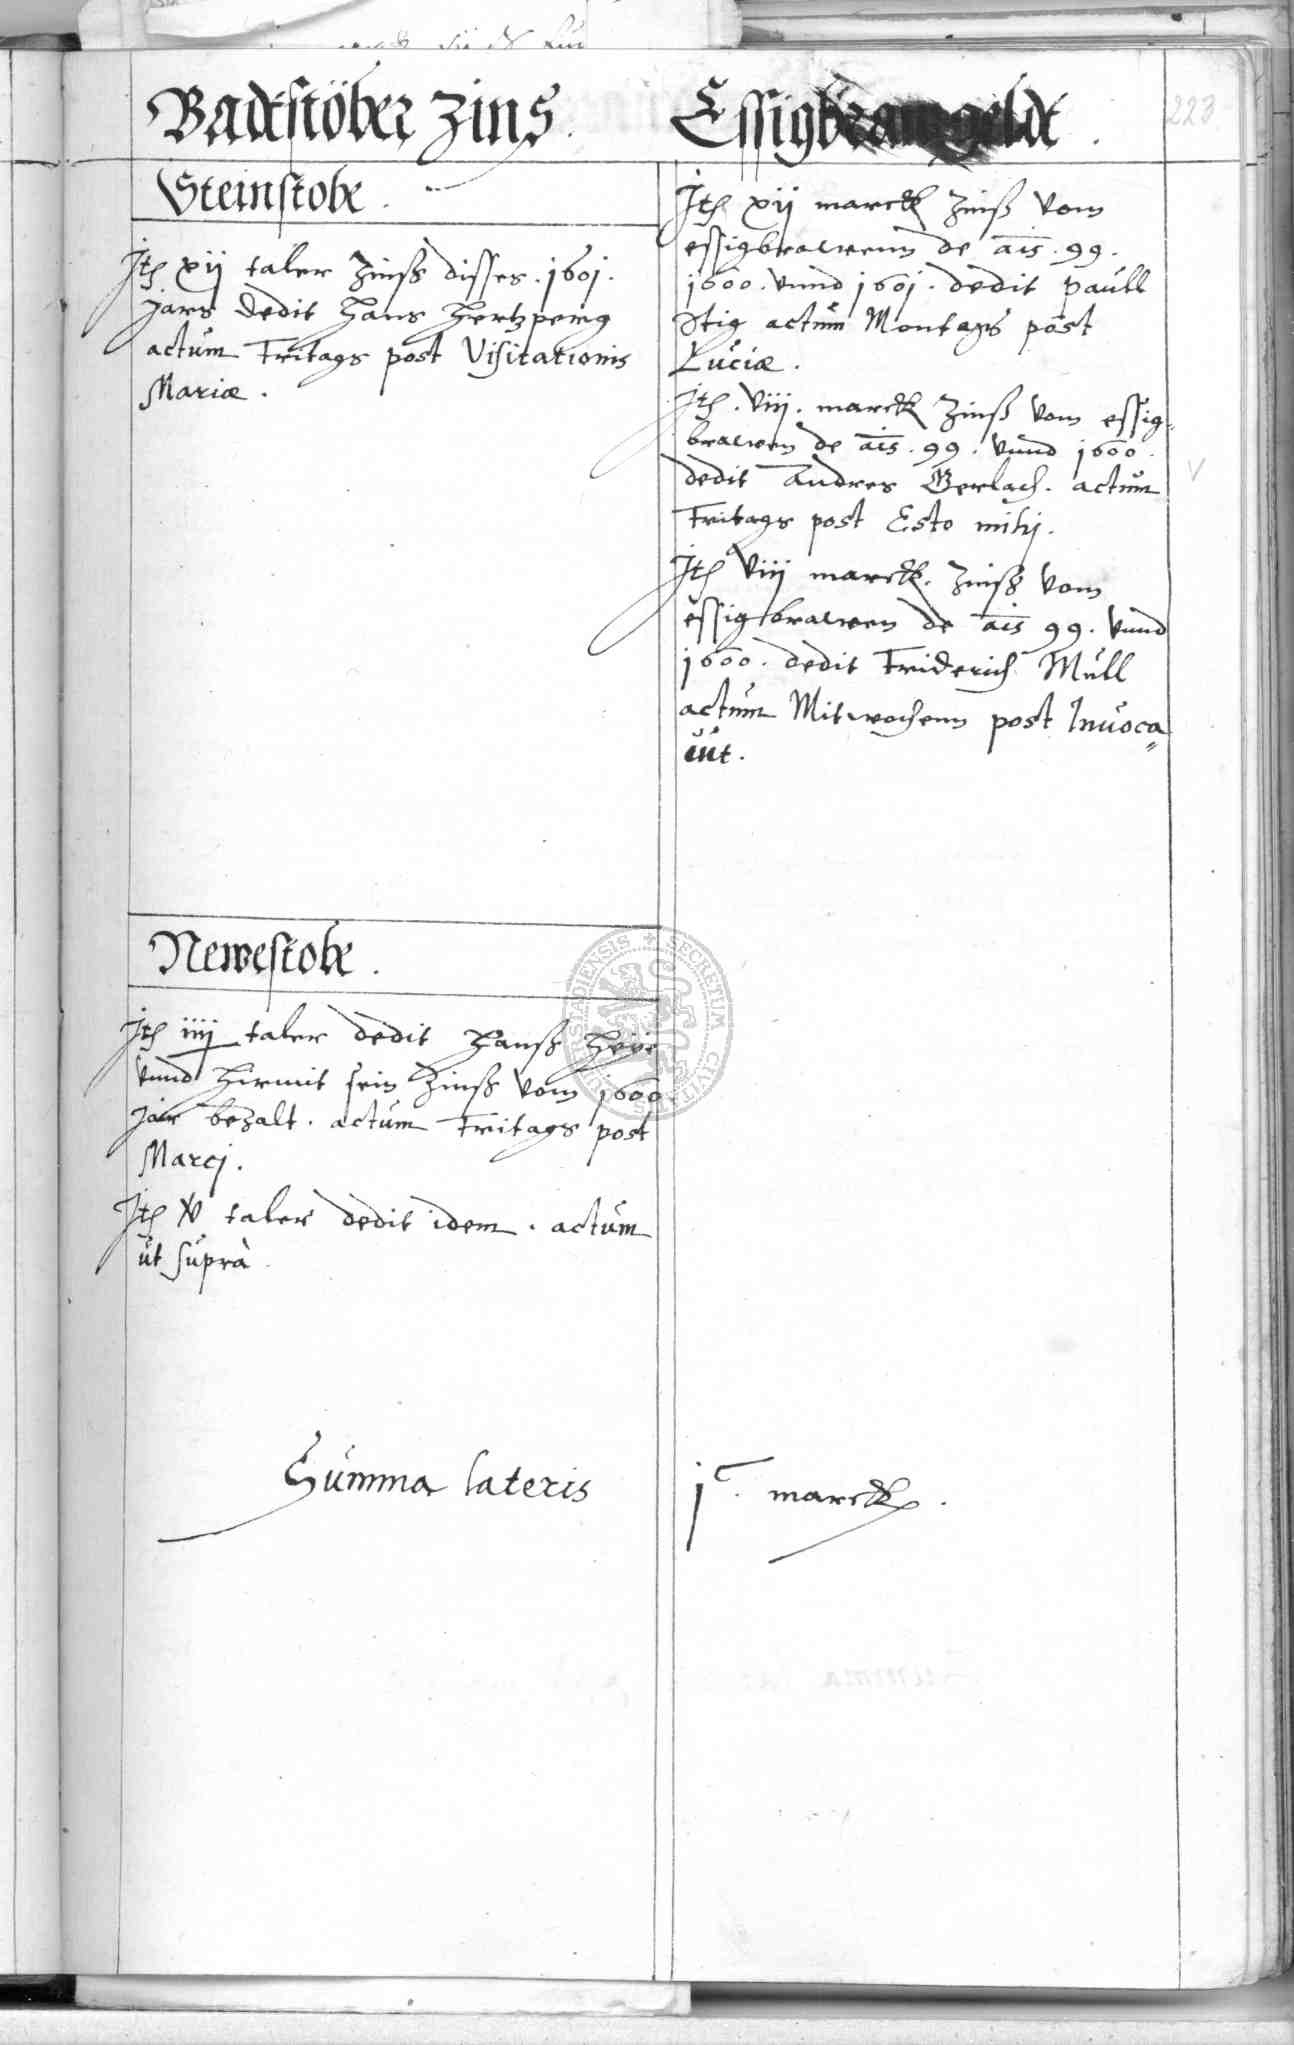 Badtstöber Zins.
Steinstobe.
Itē xij taler Zinß disses .1601.
jars dedit Hans Hertzperg
actum Fritags post Visitationis
Mariæ.
Newestobe.
Itē iiij taler dedit Hanß Heye
vnnd hirmit sein Zinß vom 1600
jar bezalt. actum Fritags post
Marcj.
Itē xv taler dedit idem. actum
ut suprà.
Summa lateris
Essigbrawgeldt.
223
Itē xij marck Zinß vom
essigbrawenn de ais .99.
1600. vnnd 1601. dedit Paull
actum Montags post
Luciæ.
Itē .viij. marck Zinß vom essig=
brawen de ais .99. vnnd 1600.
dedit Andres Gerlach. actum
Fritags post Esto mihj.
Itē viij marck. Zinß vom
essigbrawen de ais 99. vnnd
1600. dedit Friderich Mull
actum Mitwochenn post Inuoca=
uit.
jᶜ. marck.
SECRETUM CIVITATIS